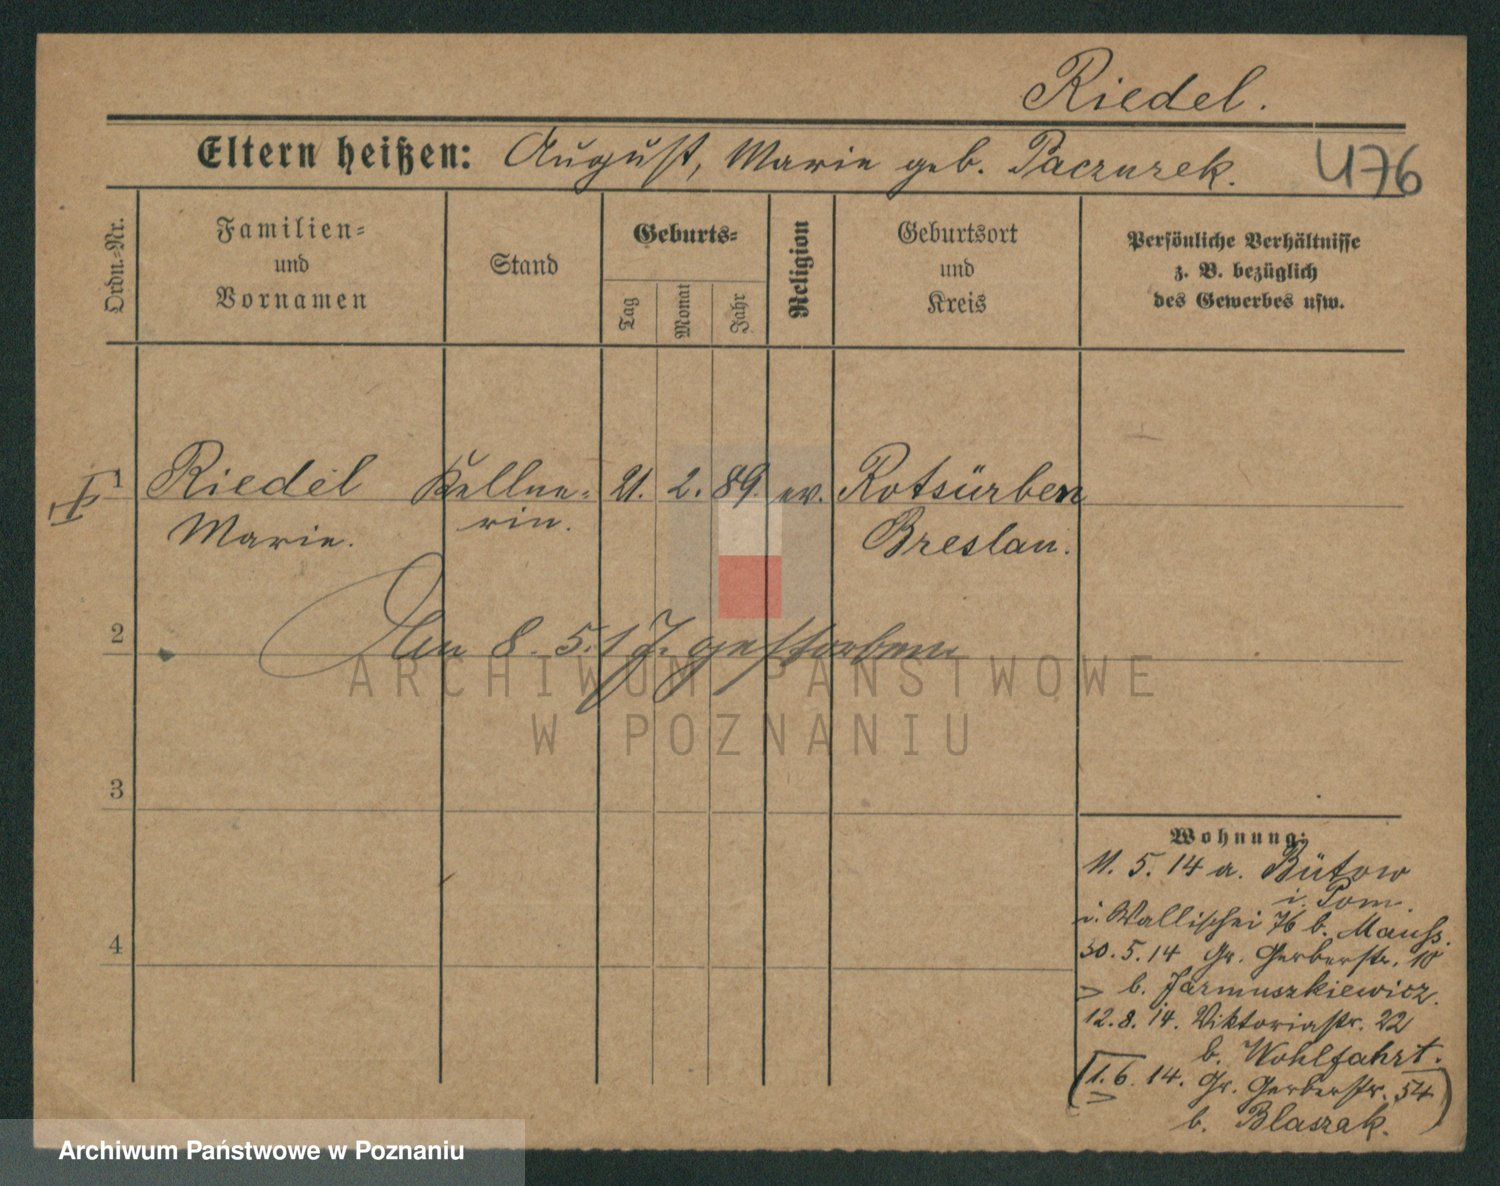 Riedel.
Eltern heißen: August, Marie geb. Paczurek.
476
Ordn.-Nr.
Familien-
und
Vornamen
Stand
Geburts-
Tag
Monat
Jahr
Religion
Geburtsort
und
Kreis
Persönliche Verhältnisse
z. B. bezüglich
des Gewerbes usw.
1 Riedel Kellne- 21. 2. 89. ev. Rotsürben
Marie. rin. Breslau.
2 Am 8. 5. 17. gestorben
3
4
Wohnung:
11. 5. 14 a. Bütow
i. Pom.
i. Wallischei 76 b. Mauss.
30. 5. 14 Gr. Gerberstr. 10
b. Jarmuszkiewicz.
12. 8. 14. Viktoriastr. 22
b. Wohlfahrt.
(1. 6. 14. Gr. Gerberstr. 54)
b. Blaszak.
ARCHIWUM PAŃSTWOWE
W POZNANIU
Archiwum Państwowe w Poznaniu